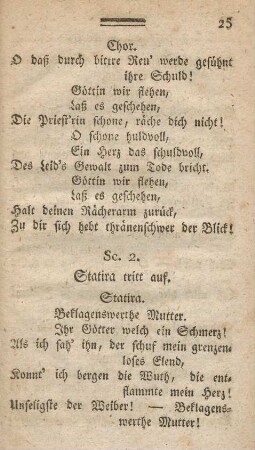 25
Chor.
O daß durch bittre Reu' werde gesühnt
ihre Schuld!
Göttin wir flehen,
Laß es geschehen,
Die Priest'rin schone, räche dich nicht!
O schone huldvoll,
Ein Herz das schuldvoll,
Des Leid's Gewalt zum Tode bricht.
Göttin wir flehen,
Laß es geschehen,
Halt deinen Rächerarm zurück,
Zu dir sich hebt thränenschwer der Blick!
Sc. 2.
Statira tritt auf.
Statira.
Beklagenswerthe Mutter.
Ihr Götter welch ein Schmerz!
Als ich sah' ihn, der schuf mein grenzen-
loses Elend,
Konnt' ich bergen die Wuth, die ent-
flammte mein Herz!
Unseligste der Weiber! — Beklagens-
werthe Mutter!